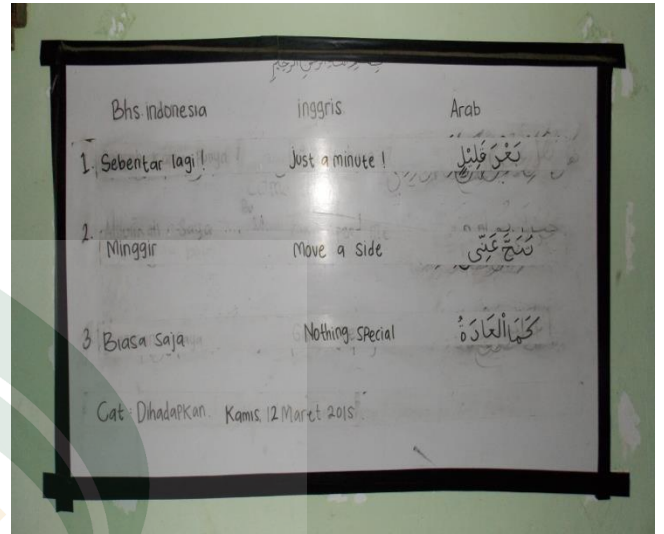 بسم الله الرحمن الرحيم
Bhs. indonesia inggris Arab
1. Sebentar lagi ! Just a minute ! بَعْدَ قَلِيْلٍ
2. Minggir Move a side تَنَحَّ عَنِّى
3 Biasa saja Nothing special كَمَا الْعَادَةُ
Cat : Dihadapkan Kamis, 12 Maret 2015